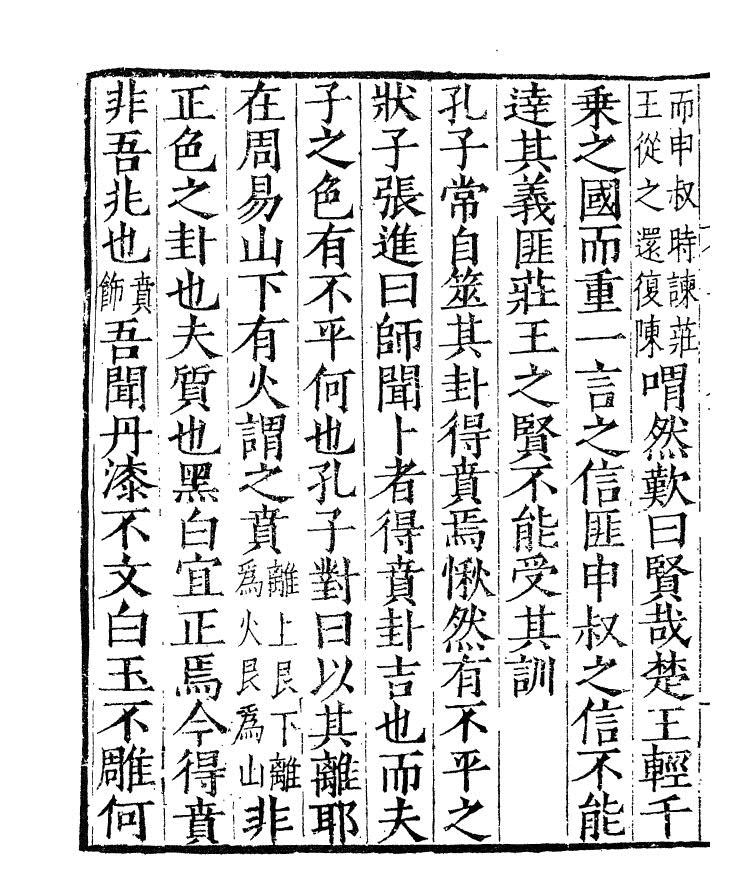 而申叔時諫莊
王從之還復陳
喟然歎曰賢哉楚王輕千
乗之國而重一言之信匪申叔之信不能
逹其義匪莊王之賢不能受其訓
孔子常自筮其卦得賁焉愀然有不平之
狀子張進曰師聞卜者得賁卦吉也而夫
子之色有不平何也孔子對曰以其離耶
在周易山下有火謂之賁
離上艮下離
為火艮為山
非
正色之卦也夫質也黑白宜正焉今得賁
非吾兆也
賁
飾
吾聞丹漆不文白玉不雕何